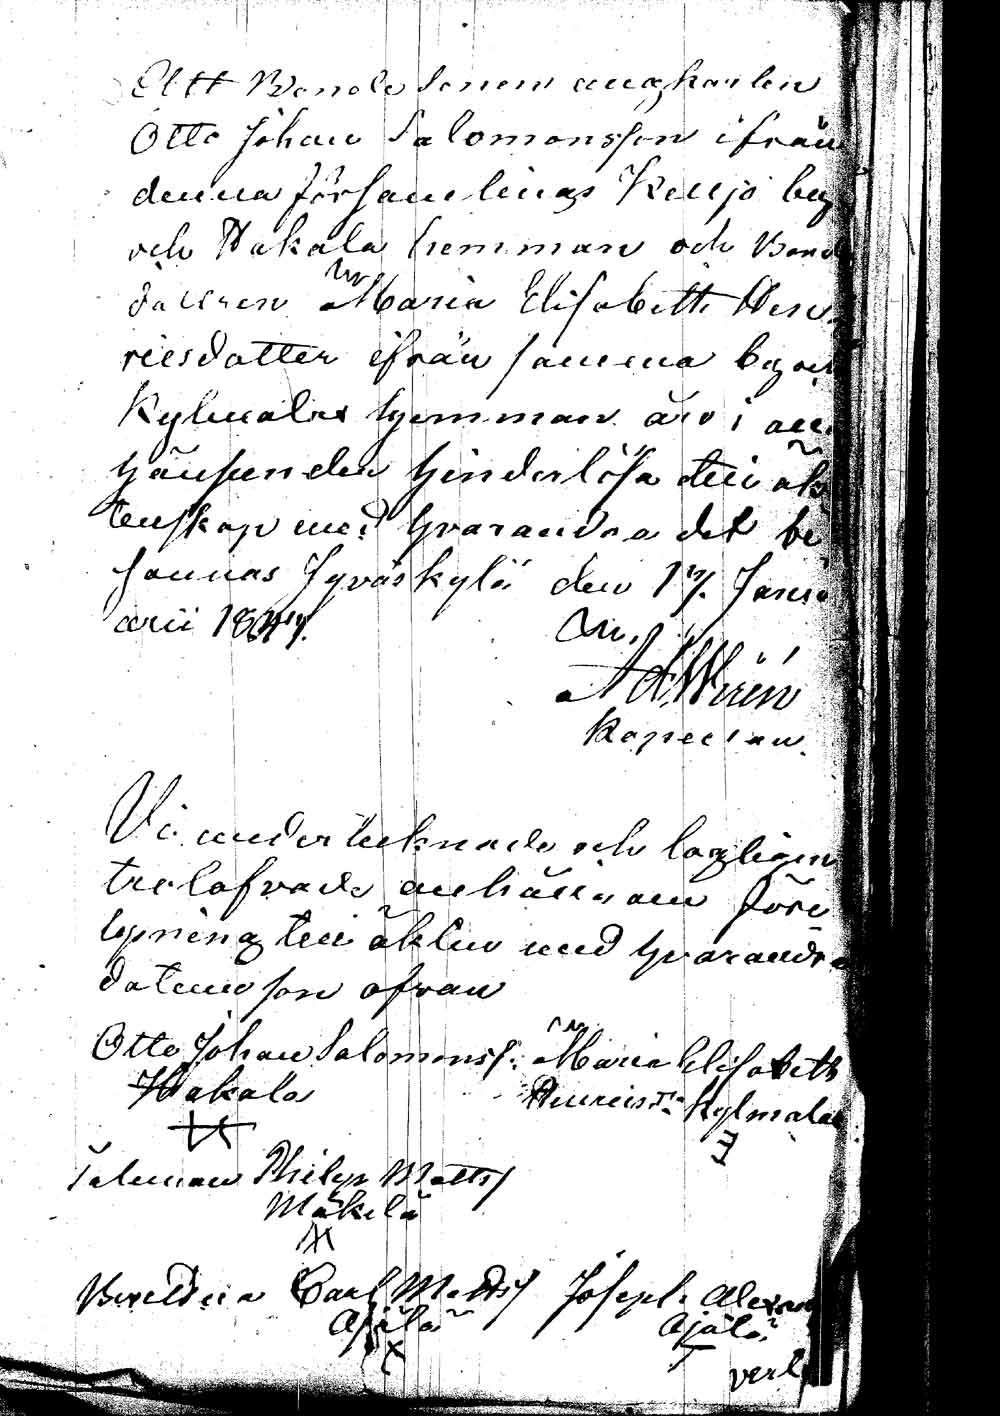 Att Bonde Sonen ungkarlen
Otto Johan Salomonsson ifrån
denna församlings Keljo by
och Hakala hemman och Bonde
dottren Maria Elisabeth Hen
ricsdotter ifrån samma by och
Kylmälä hemman äro i all
hänseenden hinderlösa till äk
tenskap med hvarandra det be
sannas Jyväskylä den 17. Janu
arii
A. H. Wirén
Kapellan.
Vi undertecknade och lagligen
trolofvade anhålla om före
lysning till äkten med hvarandra
datum som ofvan
Otto Johan Salomonss. Maria Elisabeth
Hakala Henricsdr Kylmälä
Taleman Philip Matts
Mäkelä
Carl Matts Joseph
Ajälä Ajälä